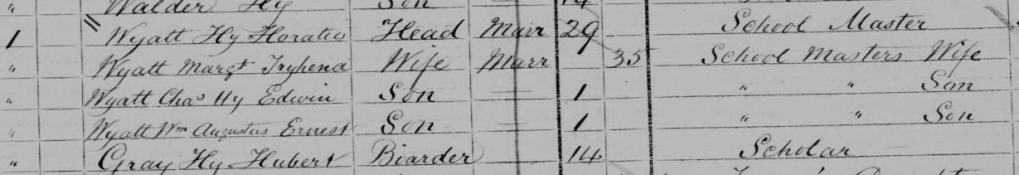 " Walder Hy Son 14
1 Wyatt Hy Horatio Head Marr 29 School Master
" Wyatt Margt Tryhena Wife Marr 35 School Masters Wife
" Wyatt Chas Hy Edwin Son — 1 " " Son
" Wyatt Wm Augustus Ernest Son — 1 " " Son
" Gray Hy Hubert Biarder 14 Scholar